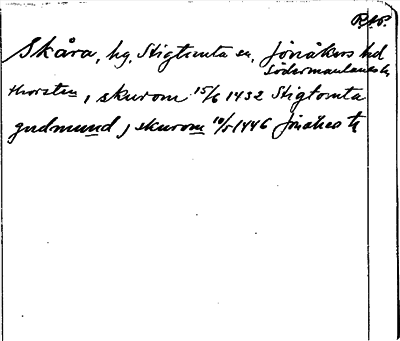 RAP.
Skåra, hg, Stigtomta sn, Jönåkers hd
Södermanlands
thorsten, skurom 15/6 1432 Stigtomta
gudmund, skurom 10/5 1446 Jönåkers